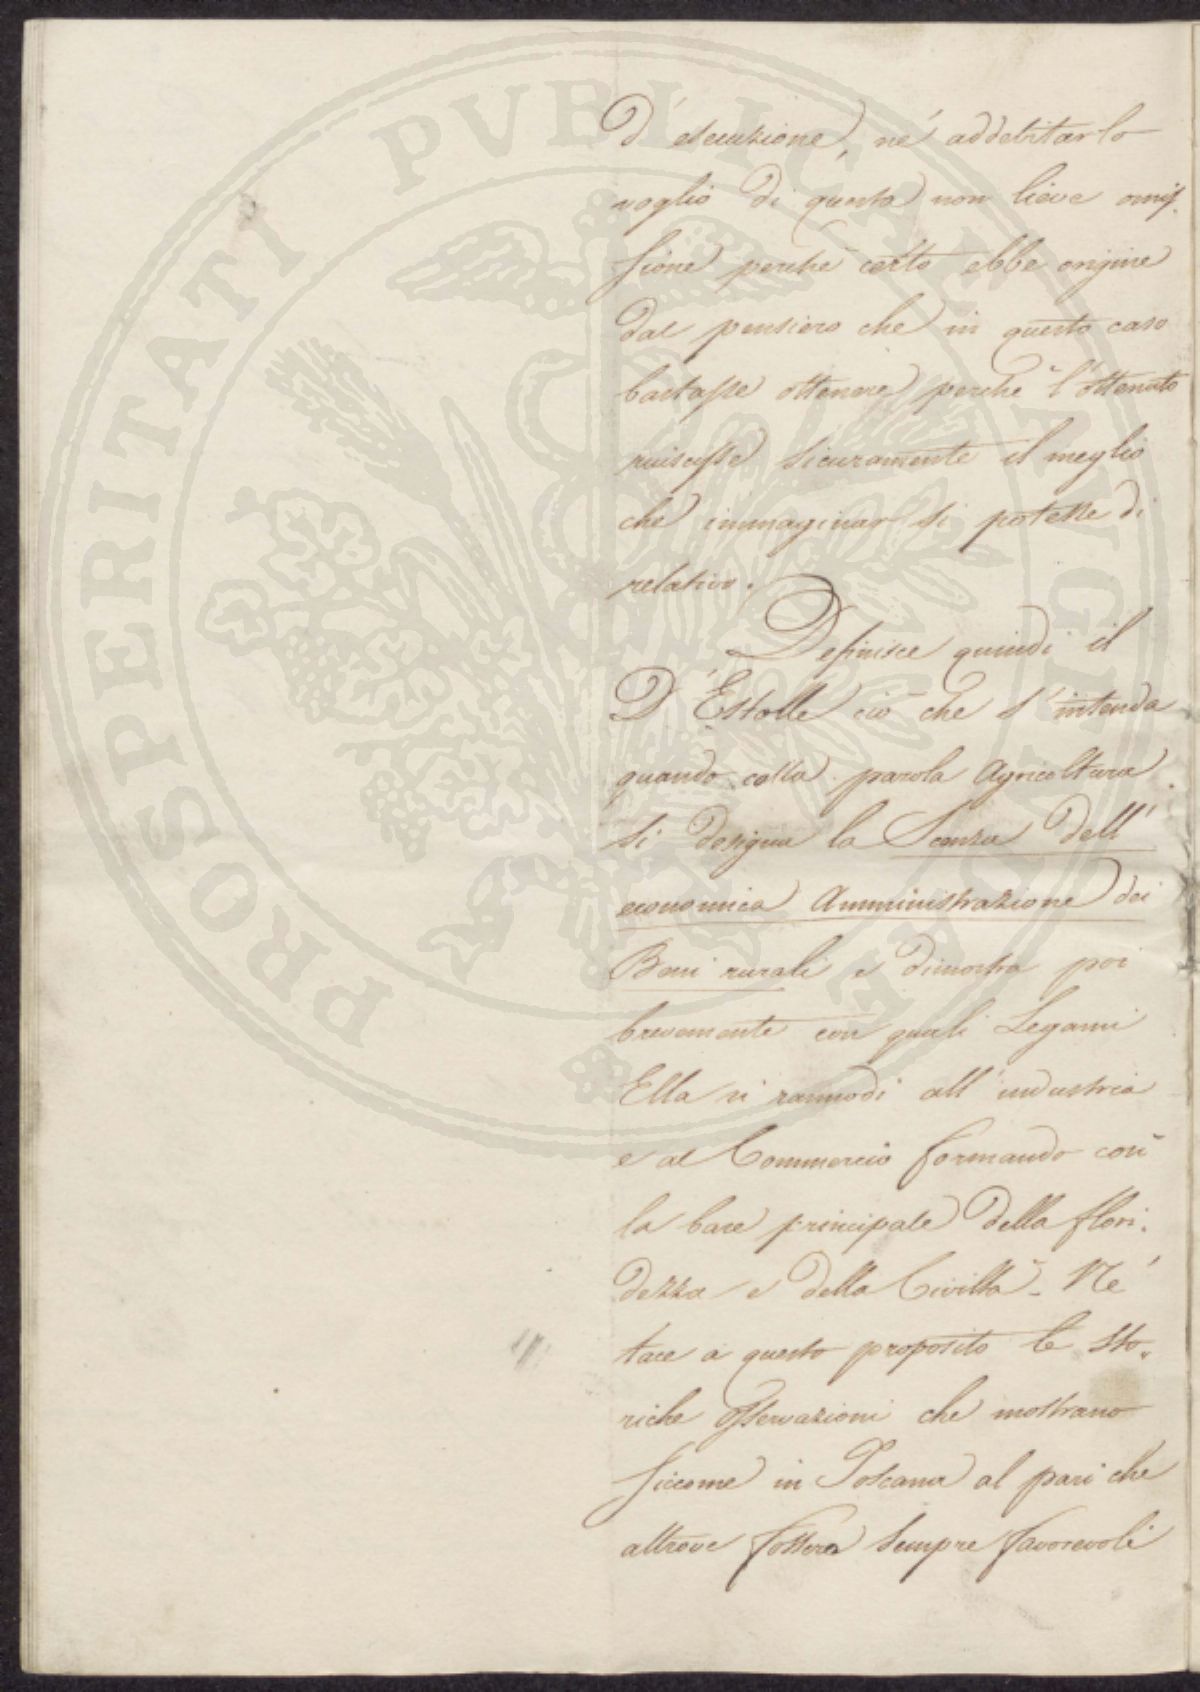 PROSPERITATI PVBLICAE AVGENDAE
D' esecuzione, né addebitarlo
voglio di questa non lieve omis-
sione perchè certo ebbe origine
dal pensiero che in questo caso
bastasse ottenere perchè l'ottenuto
riuscisse sicuramente il meglio
che immaginar si potesse di
relativo.
Definisce quindi il
D' Estolle ciò che s'intenda
quando colla parola Agricoltura
si designa la Scenza dell'
economica Amministrazione dei
Beni rurali e dimostra poi
brevemente con quali Legami
Ella si rannodi all'industria
e al Commercio formando con
la base principale della flori-
dezza e della Civiltà. Né
tace a questo proposito le sto-
riche osservazioni che mostrano
siccome in Toscana al pari che
altrove fossero sempre favorevoli